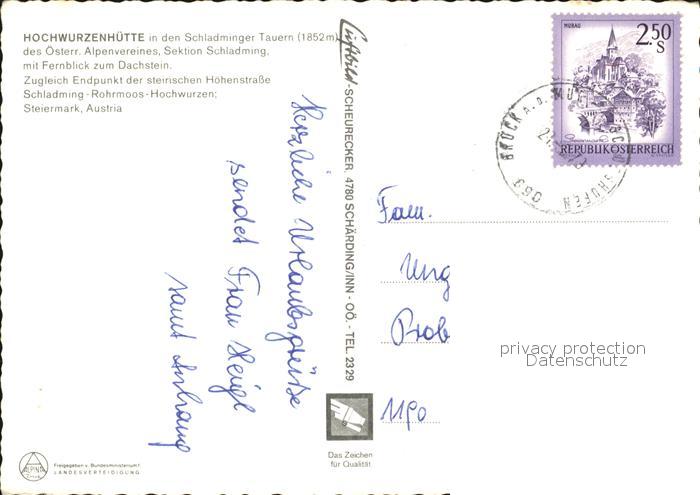 HOCHWURZENHÜTTE in den Schladminger Tauern (1852 m)
des Österr. Alpenvereines, Sektion Schladming,
mit Fernblick zum Dachstein.
Zugleich Endpunkt der steirischen Höhenstraße
Schladming-Rohrmoos-Hochwurzen;
Steiermark, Austria
Herzliche Urlaubsgrüße
sendet Frau Heigl
samt Anhang
Luftbild-SCHEURECKER, 4780 SCHÄRDING/INN - OÖ. - TEL. 2329
MURAU
2.50
S
REPUBLIK ÖSTERREICH
BRUCK A. D.
Fam.
Ung
Prob
1190
privacy protection
Datenschutz
Das Zeichen
für Qualität
ALPINA
Freigegeben v. Bundesministerium f.
LANDESVERTEIDIGUNG